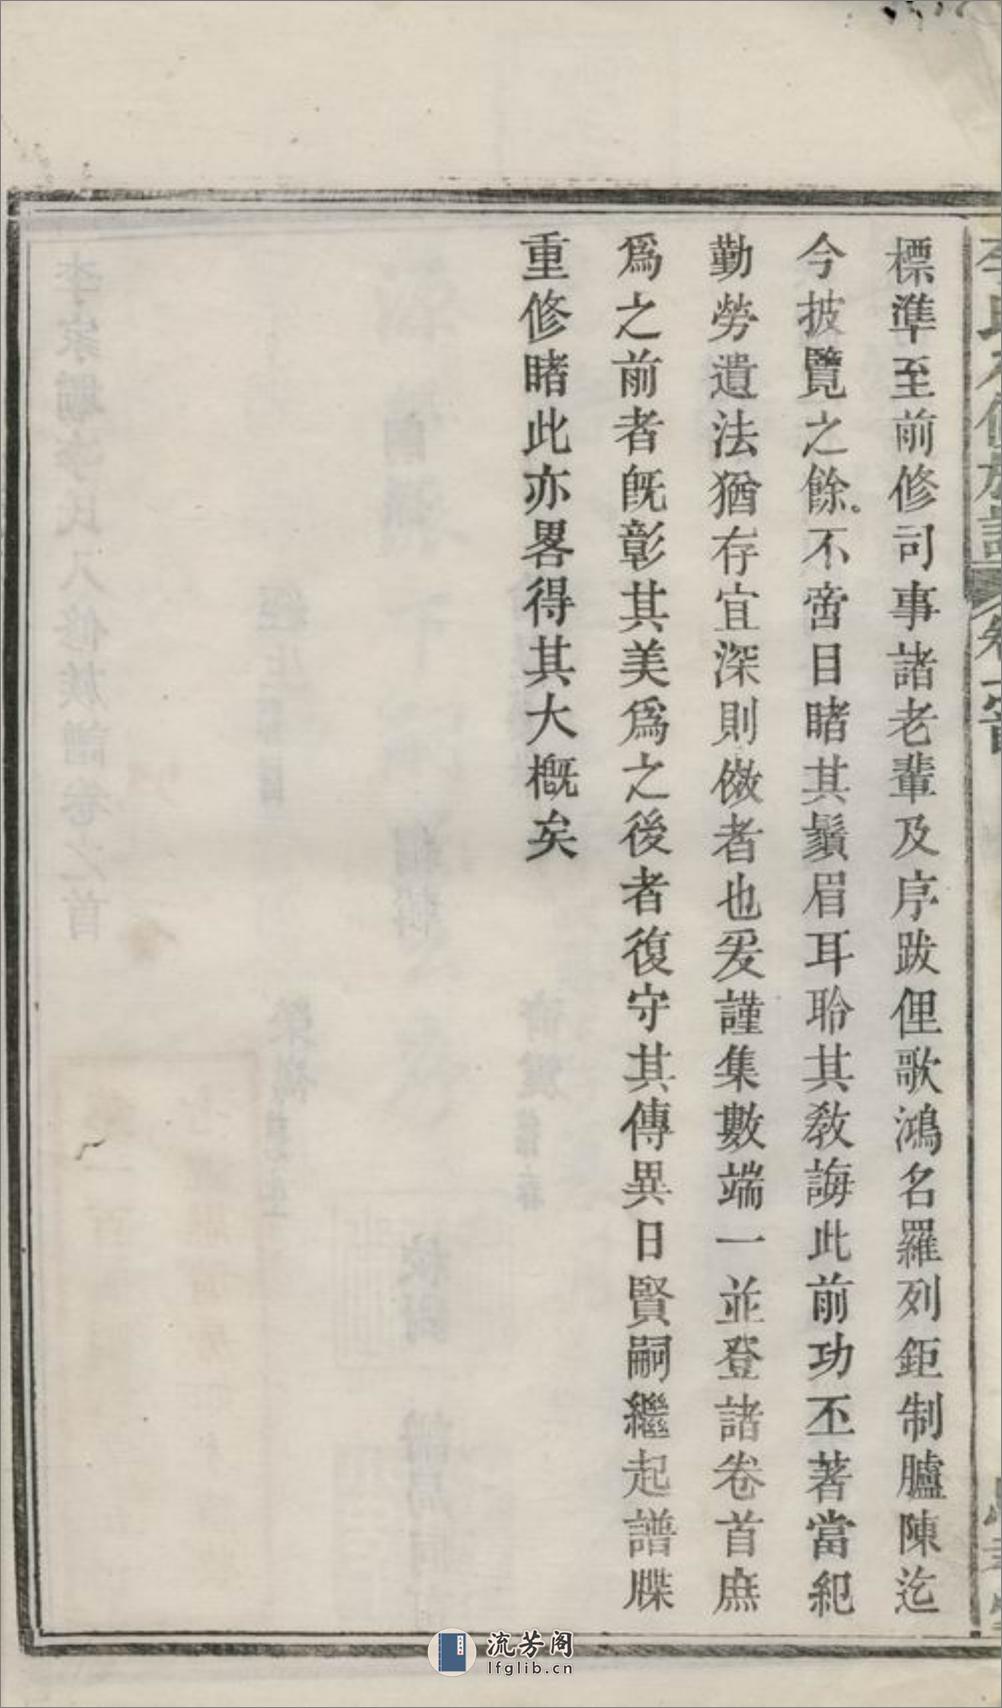 標準至前修司事諸老輩及序跋俚歌鴻名羅列鉅制臚陳迄
今披覽之餘不啻目睹其鬚眉耳聆其敎誨此前功丕著當紀
勤勞遺法猶存宜深則傚者也爰謹集數端一並登諸卷首庶
爲之前者旣彰其美爲之後者復守其傳異日賢嗣繼起譜牒
重修睹此亦畧得其大槪矣
流芳阁
lfglib.cn